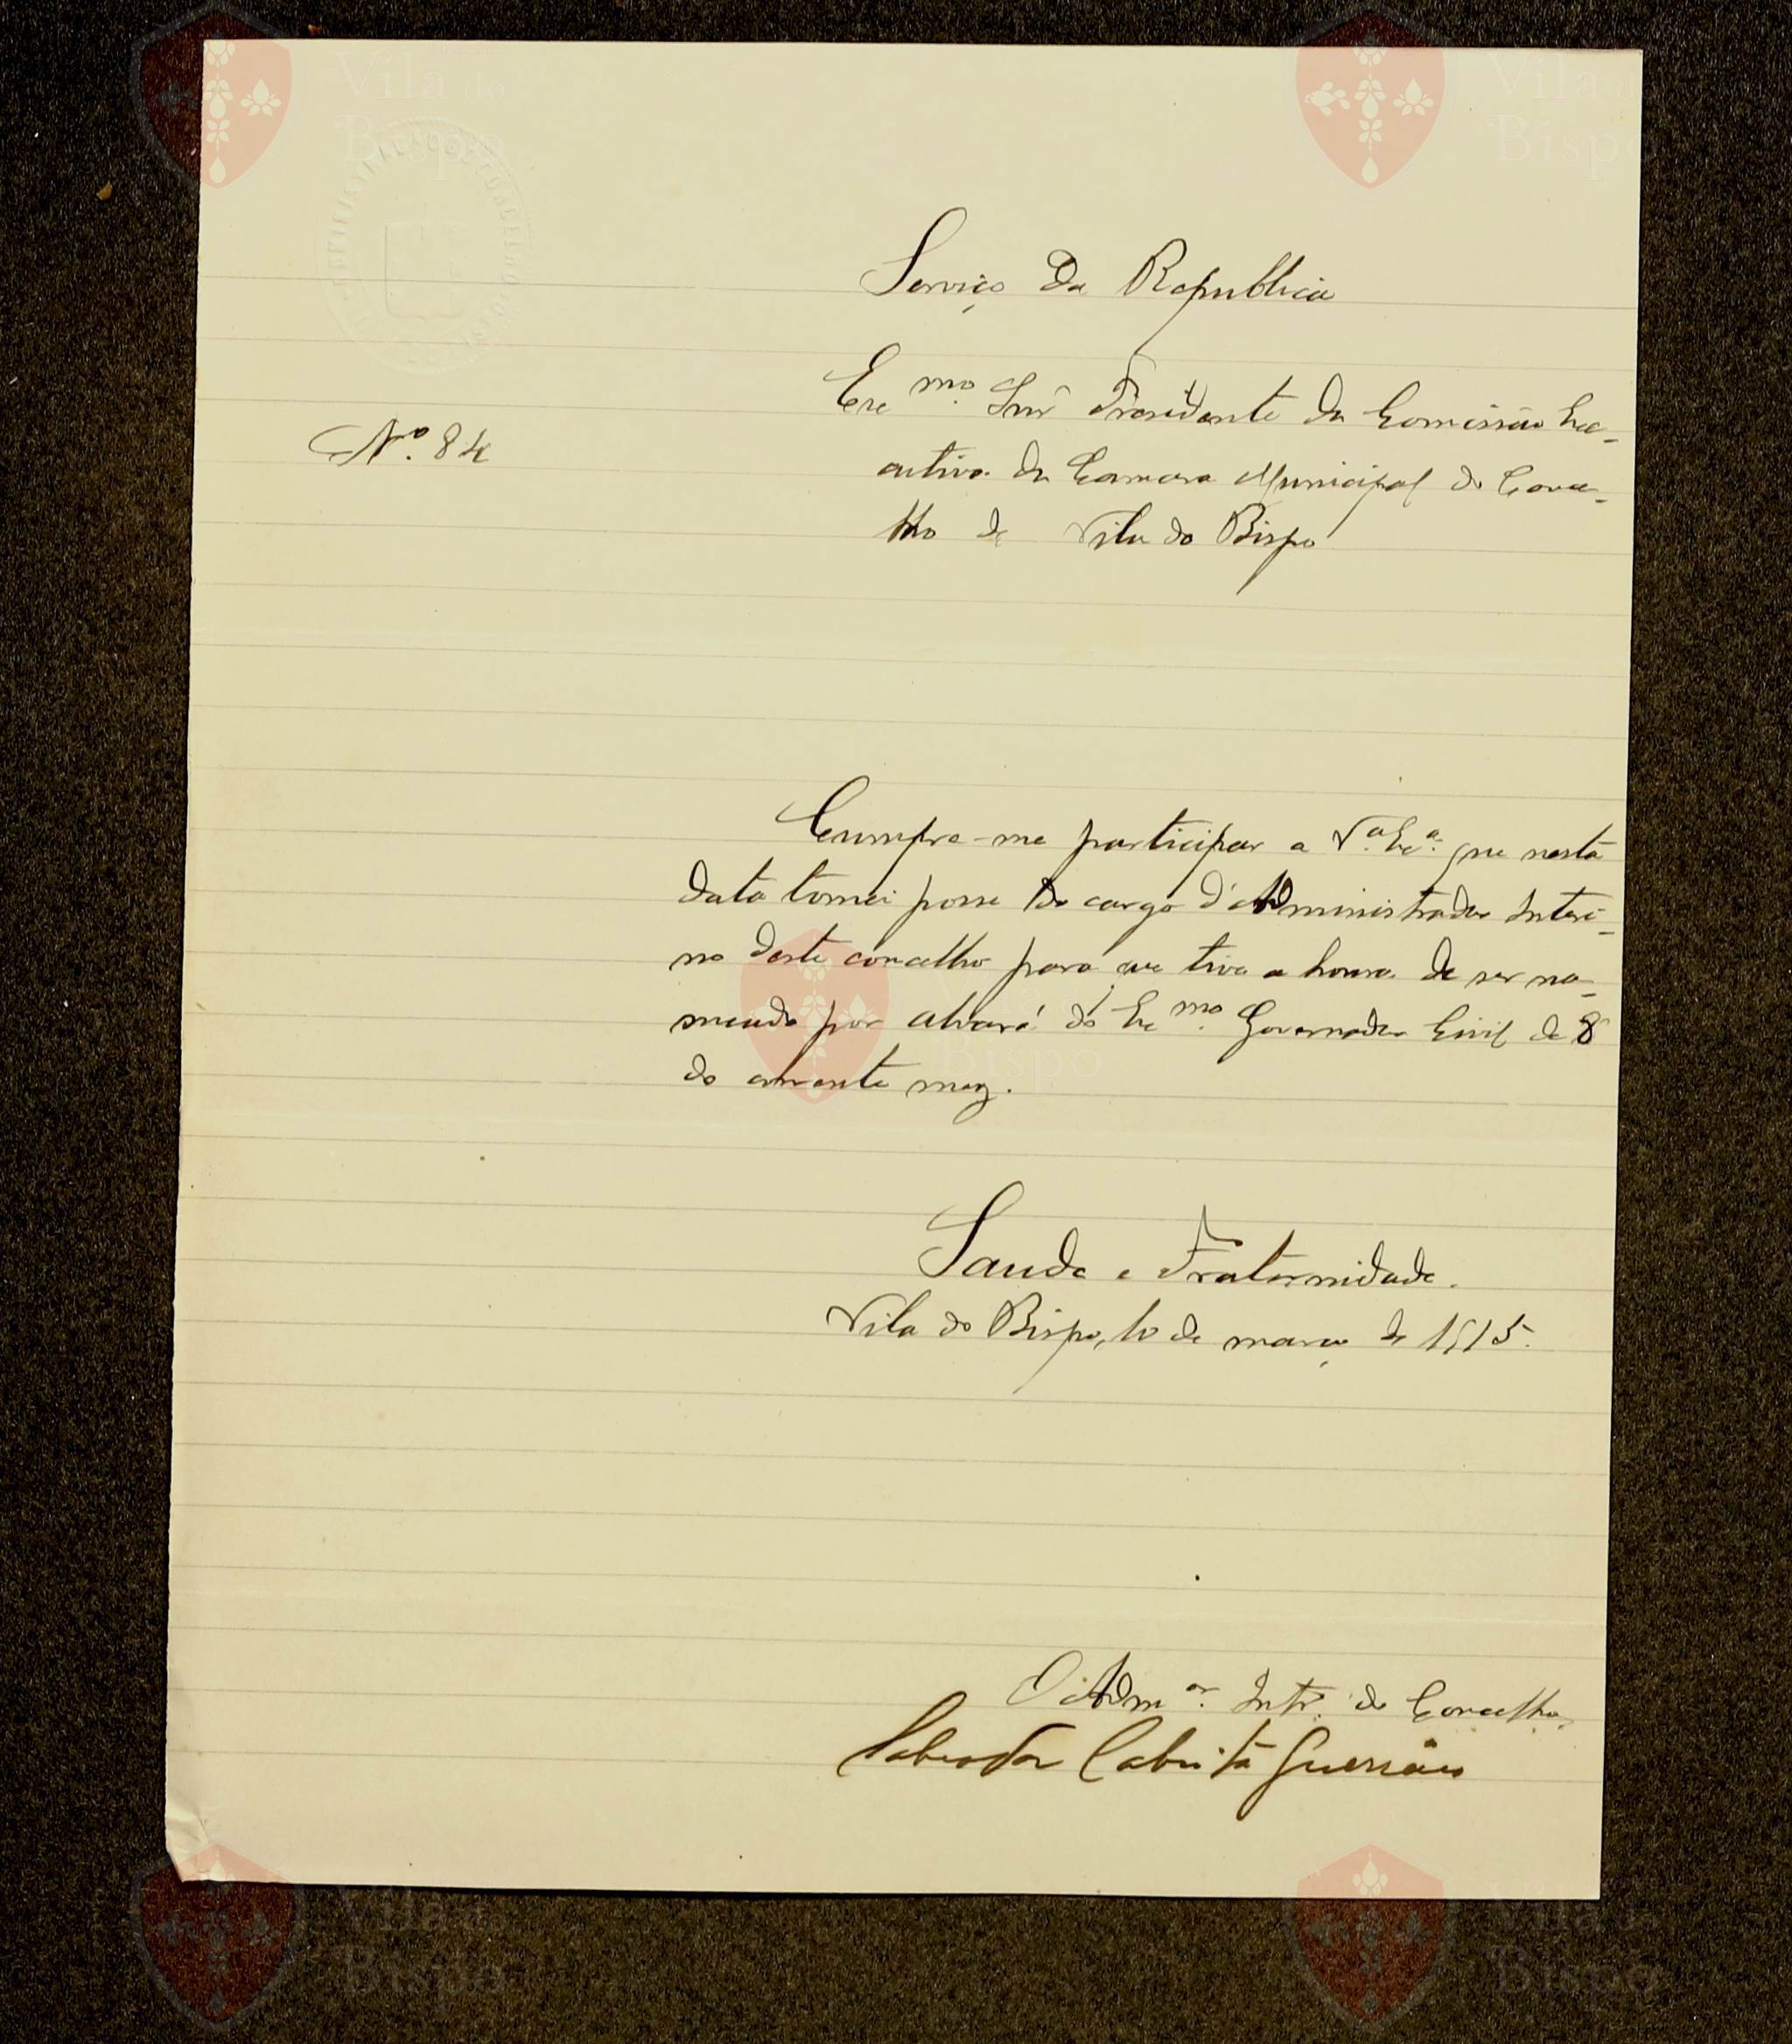 Serviço Da Republica
Exc mo. Snr Presidente da Comissão Exe-
Nº. 84
cutiva da Camara Municipal do Conce-
lho de Vila do Bispo
Cumpre-me participar a V.ª Exª. que nesta
data tomei posse do cargo d'Administrador Interi-
no deste concelho para que tive a honra de ser no-
meado por alvará do Exc mo. Governador Civil de 8
do corrente mez.
Saude e Fraternidade.
Vila do Bispo, 10 de março de 1915.
O Adm or. Intº. do Concelho,
Cabrita
Vila do
Bispo
Vila do
Bispo
Bispo
Vila do
Bispo
Vila do
Bispo